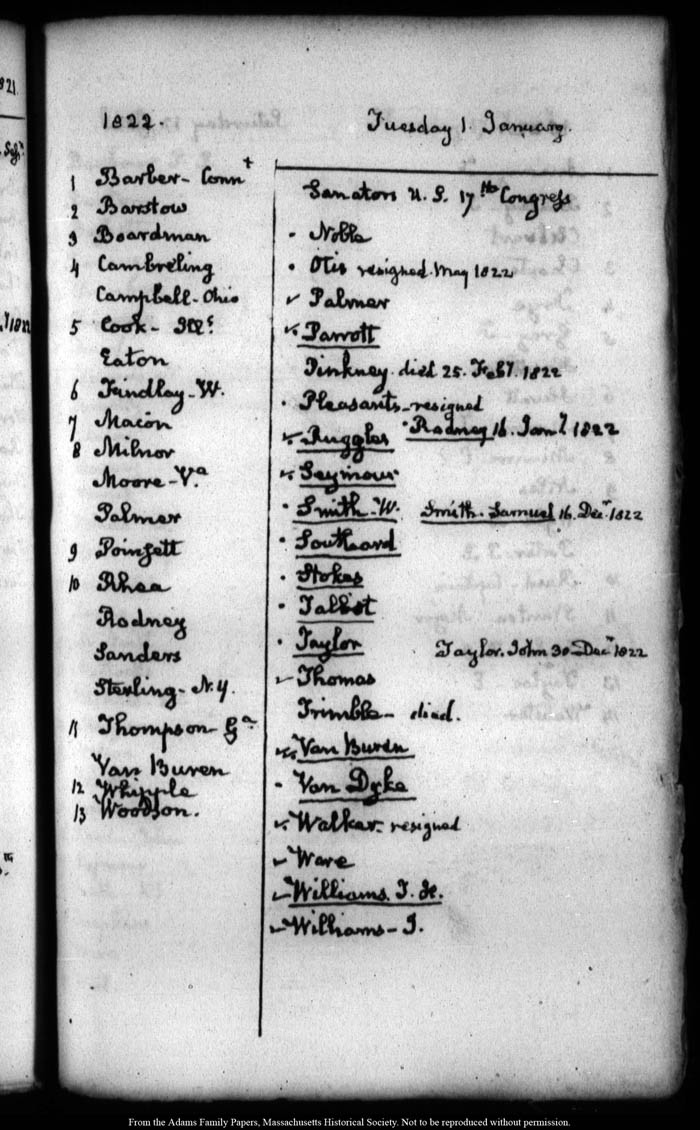 821
1822.
Tuesday 1. January.
1 Barber- Connt
2 Barstow
3 Boardman
4 Cambreling
Campbell- Ohio
5 Cook- Ills
Eaton
6 Findlay- W.
7 Macon
8 Milnor
Moore- Va
Palmer
9 Poinsett
10 Rhea
Rodney
Sanders
Sterling- N.Y.
11 Thompson Ga
Van Buren
12 Whipple
13 Woodson.
Senators U.S. 17th Congress
Noble
Otis resigned. May 1822
Palmer
Parrott
Pinkney. died 25. Feby. 1822
Pleasants- resigned
Ruggles Rodney 16. Jany 1822
Seymour
Smith- W. Smith. Samuel 16. Decr 1822
Southard
Stokes
Talbot
Taylor Taylor. John 30 Decr 1822
Thomas
Trimble- died.
Van Buren
Van Dyke
Walker- resigned
Ware
Williams. T. H.
Williams- J.
From the Adams Family Papers, Massachusetts Historical Society. Not to be reproduced without permission.